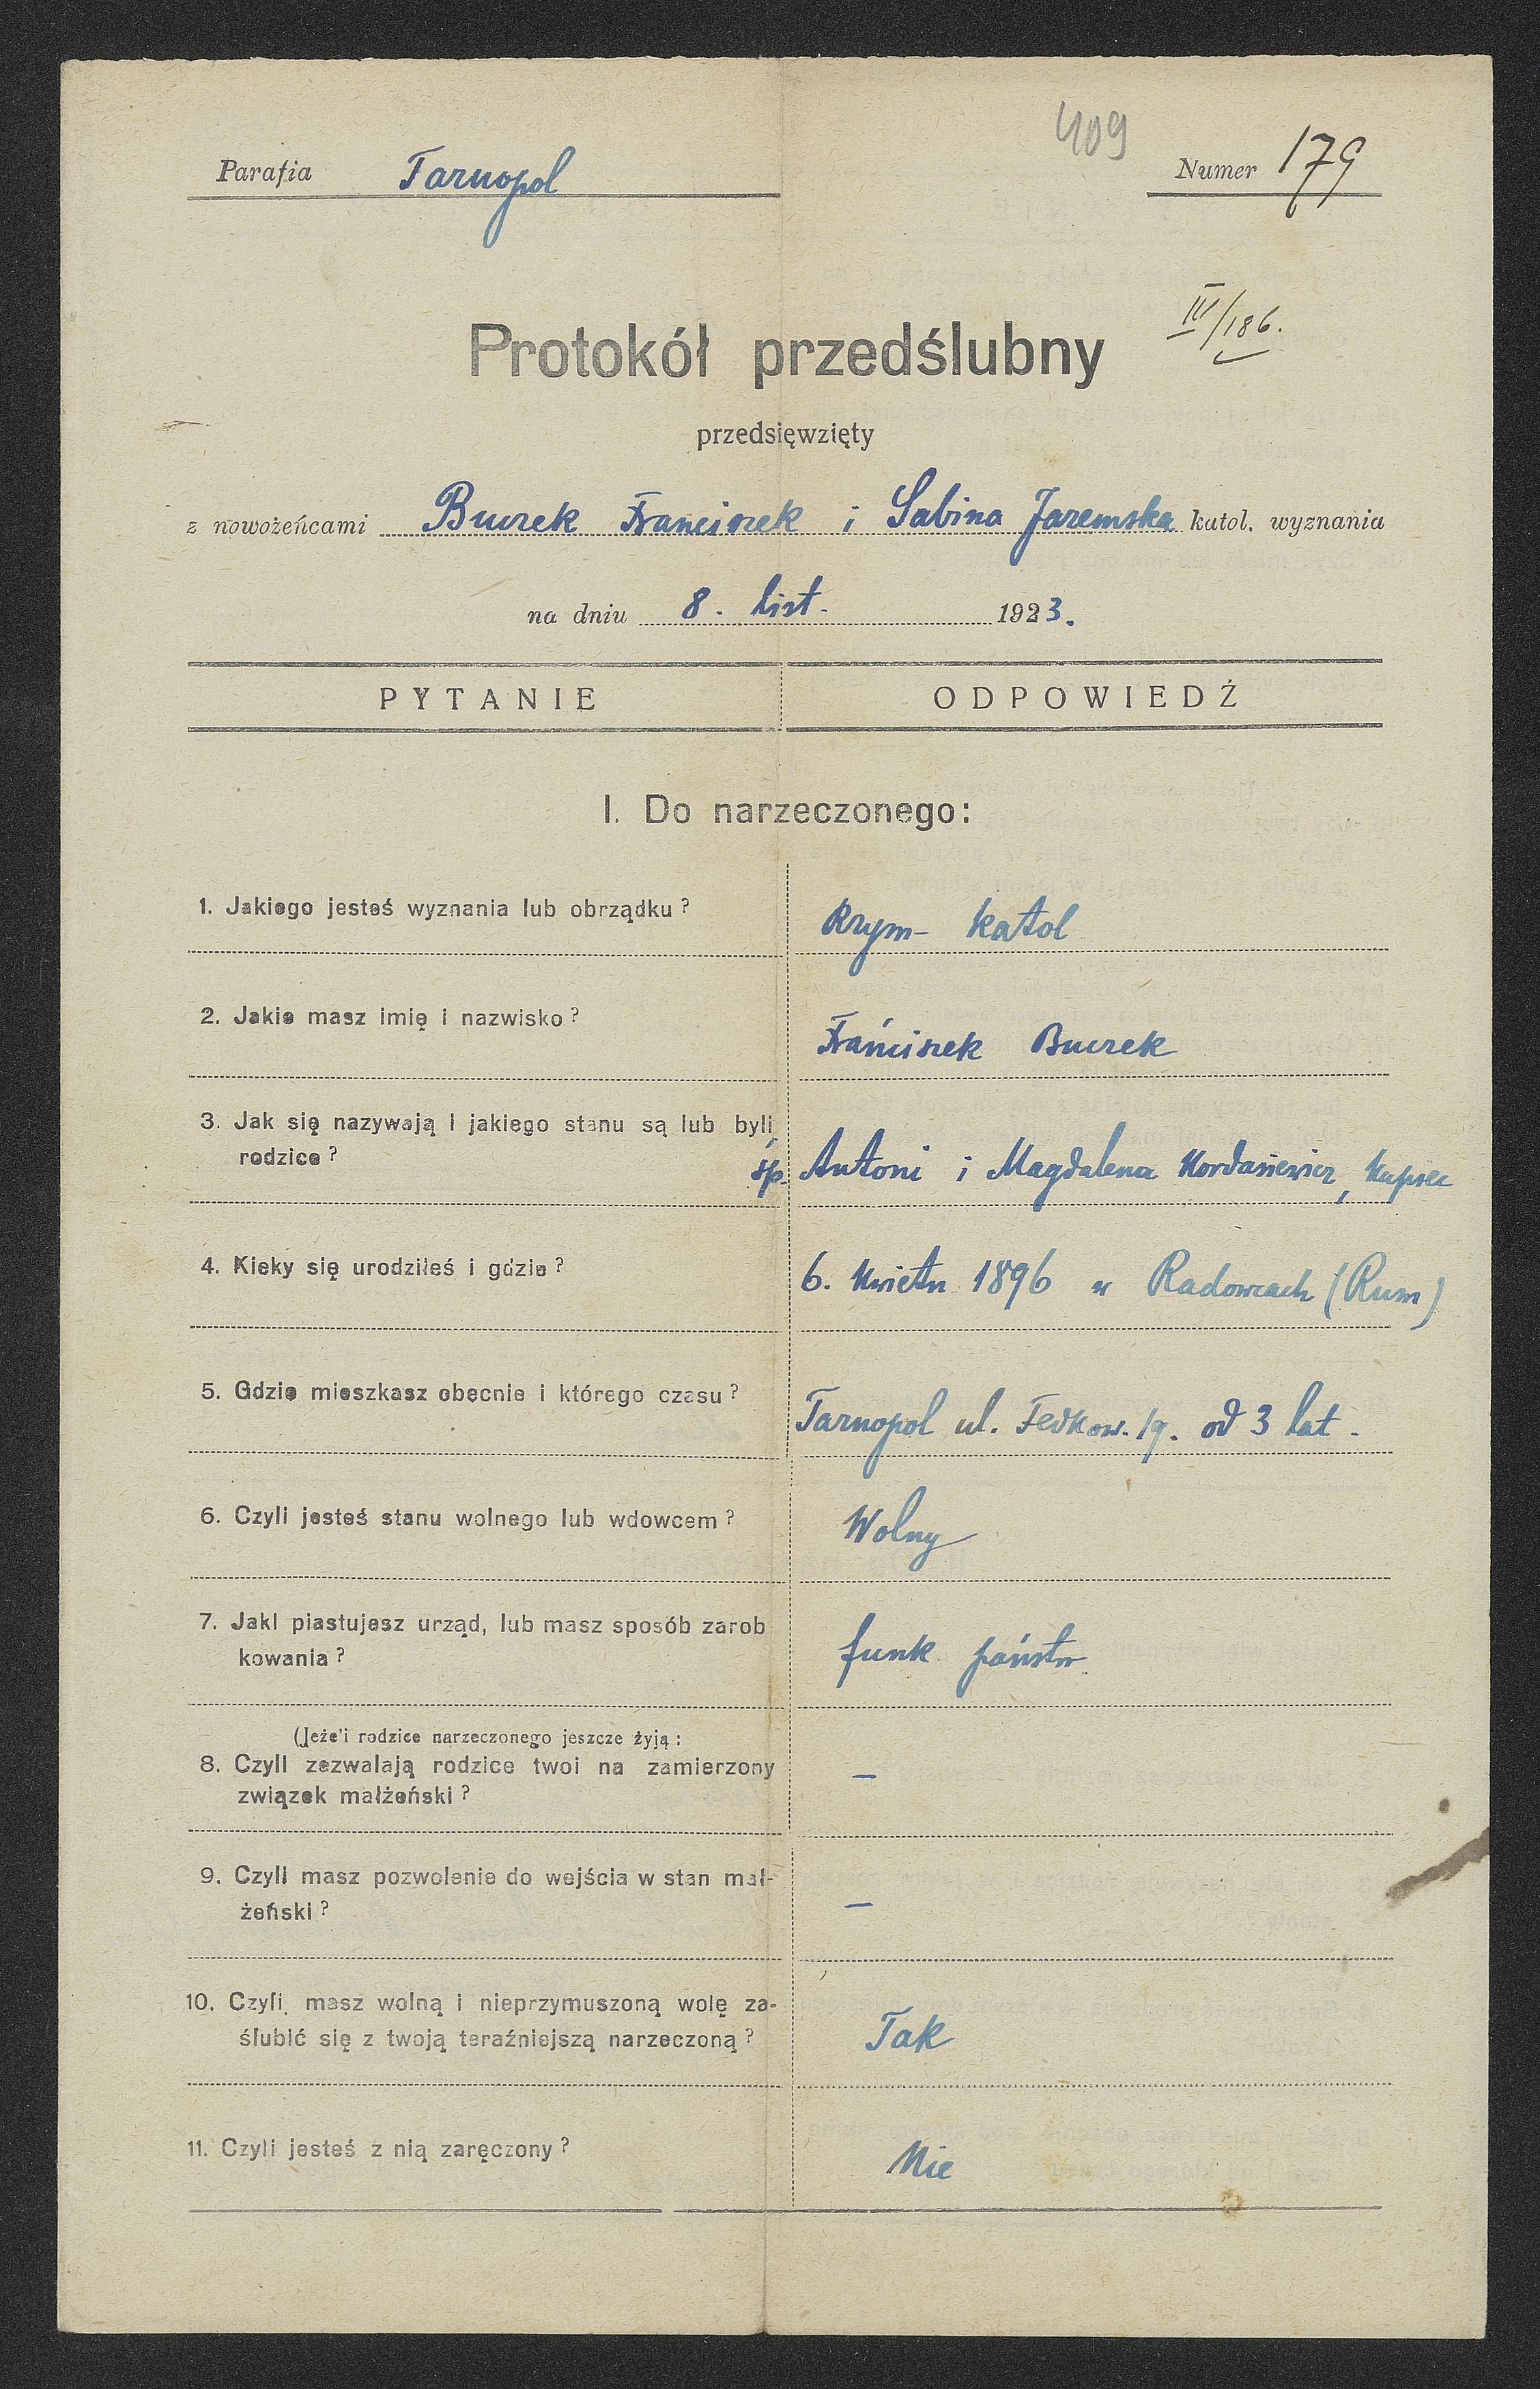 409
Parafia Tarnopol Numer 179
III/186.
Protokół przedślubny
przedsięwzięty
z nowożeńcami Buczek Franciszek i Sabina Jaremska katol. wyznania
na dniu 8. list. 1923.
PYTANIE ODPOWIEDŹ
I. Do narzeczonego:
1. Jakiego jesteś wyznania lub obrządku?
Rzym- katol
2. Jakie masz imię i nazwisko?
Franciszek Buczek
3. Jak się nazywają i jakiego stanu są lub byli
rodzice?
śp. Antoni i Magdalena Kordasiewicz, kupiec
4. Kieky się urodziłeś i gdzie?
6. Kwietn 1896 w Radowcach (Rum)
5. Gdzie mieszkasz obecnie i którego czasu?
Tarnopol ul. Fedkow. 19. od 3 lat.
6. Czyli jesteś stanu wolnego lub wdowcem?
Wolny
7. Jaki piastujesz urząd, lub masz sposób zarob
kowania?
funk państw.
(Jeże'i rodzice narzeczonego jeszcze żyją:
8. Czyli zezwalają rodzice twoi na zamierzony
związek małżeński?
–
9. Czyli masz pozwolenie do wejścia w stan mał-
żeński?
–
10. Czyli masz wolną i nieprzymuszoną wolę za-
ślubić się z twoją teraźniejszą narzeczoną?
Tak
11. Czyli jesteś z nią zaręczony?
Nie